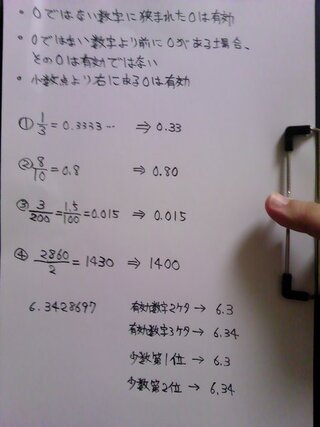 ・0ではない数字に狭まれた0は有効
・0ではない数字より前に0がある場合、
その0は有効ではない
・小数点より右にある0は有効
① 1/3 = 0.3333… ⇒ 0.33
② 8/10 = 0.8 ⇒ 0.80
③ 3/200 = 1.5/100 = 0.015 ⇒ 0.015
④ 2860/2 = 1430 ⇒ 1400
6.3428697
有効数字2ケタ → 6.3
有効数字3ケタ → 6.34
少数第1位 → 6.3
少数第2位 → 6.34